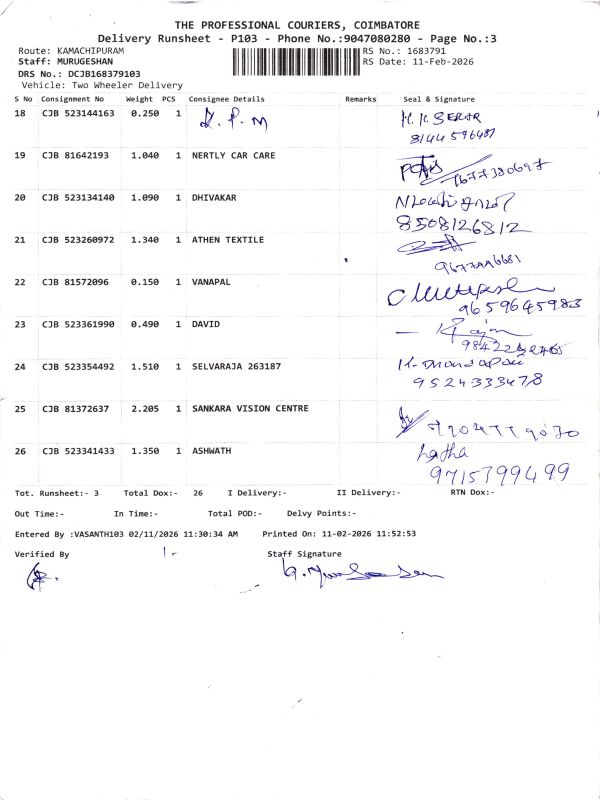 THE PROFESSIONAL COURIERS, COIMBATORE
Delivery Runsheet - P103 - Phone No.:9047080280 - Page No.:3
Route: KAMACHIPURAM RS No.: 1683791
Staff: MURUGESHAN RS Date: 11-Feb-2026
DRS No.: DCJB168379103
Vehicle: Two Wheeler Delivery
S No Consignment No Weight PCS Consignee Details Remarks Seal & Signature
18 CJB 523144163 0.250 1
8144596487
19 CJB 81642193 1.040 1 NERTLY CAR CARE
20 CJB 523134140 1.090 1 DHIVAKAR
8508126812
21 CJB 523260972 1.340 1 ATHEN TEXTILE
22 CJB 81572096 0.150 1 VANAPAL
9659645983
23 CJB 523361990 0.490 1 DAVID
24 CJB 523354492 1.510 1 SELVARAJA 263187
9524333478
25 CJB 81372637 2.205 1 SANKARA VISION CENTRE
26 CJB 523341433 1.350 1 ASHWATH Latha
9715399499
Tot. Runsheet:- 3 Total Dox:- 26 I Delivery:- II Delivery:- RTN Dox:-
Out Time:- In Time:- Total POD:- Delvy Points:-
Entered By :VASANTH103 02/11/2026 11:30:34 AM Printed On: 11-02-2026 11:52:53
Verified By Staff Signature